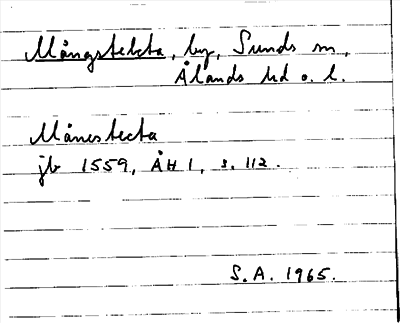 Mångstekta, by, Sunds sn,
Ålands hd o. l.
Månestecta
jb 1559, ÅH 1, s. 112.
S.A. 1965.